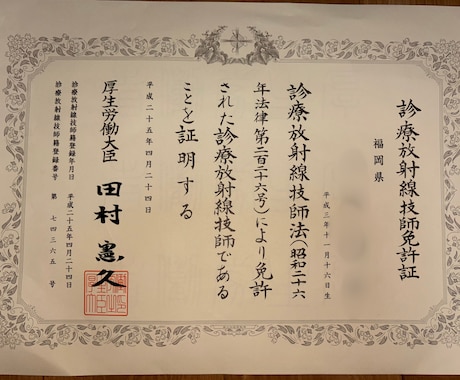 診療放射線技師免許証
福岡県
平成三年十一月十六日生
診療放射線技師法(昭和二十六
年法律第二百二十六号)により免許
された診療放射線技師である
ことを証明する
平成二十五年四月二十四日
厚生労働大臣 田村憲久
診療放射線技師籍登録年月日 平成二十五年四月二十四日
診療放射線技師籍登録番号 第 七四三六五 号